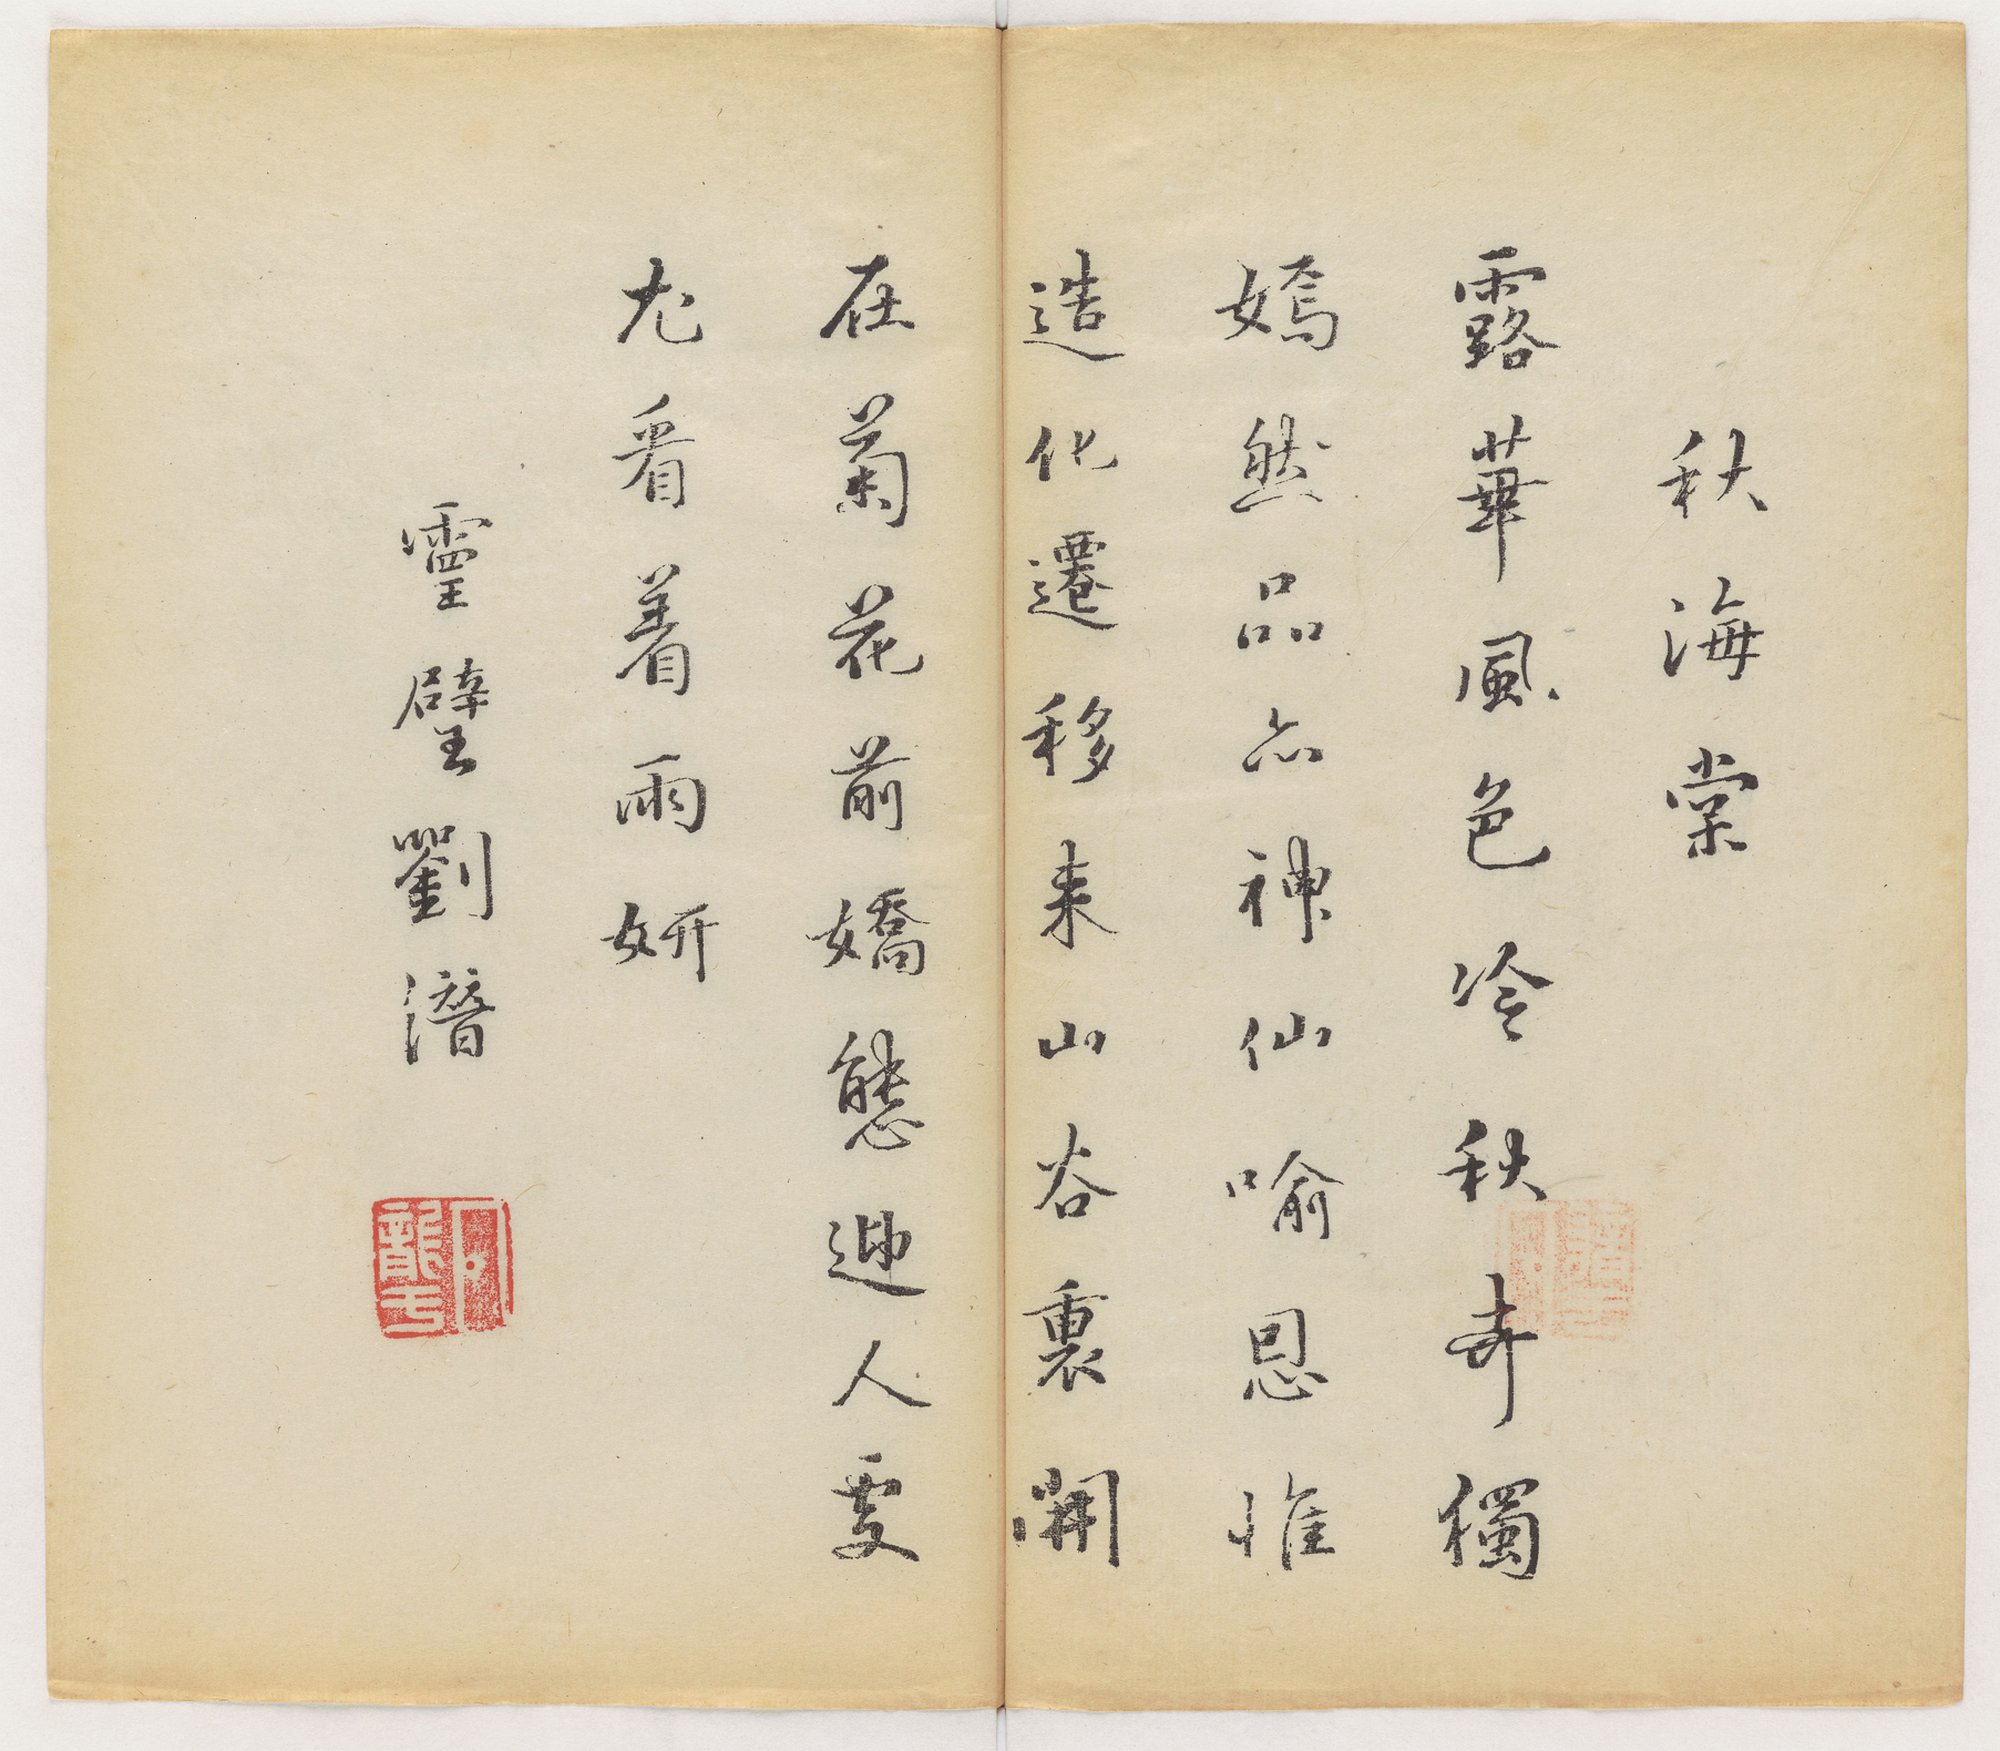 秋海棠
露華風色冷秋卉獨
嫣然品亦神仙喻恩惟
造化遷移来山谷裏開
在菊花前嬌態迎人處
尤看着雨妍
靈璧劉潛